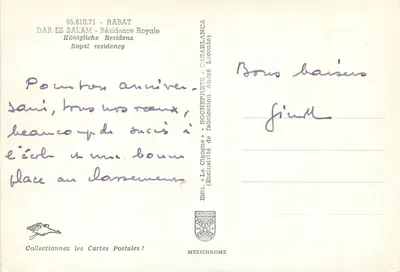 95.610.71 - RABAT
DAR ES SALAM - Résidence Royale
Königliche Residenz
Royal residency
Pour ton anniver-
saire, tous nos vœux,
beaucoup de succès à
l'école et une bonne
place au classement
Bons baisers
Edit. « La Cigogne » - SOCHEPRESS - CASABLANCA
(Exclusivité de fabrication André Leconte)
Collectionnez les Cartes Postales !
MEXICHROME